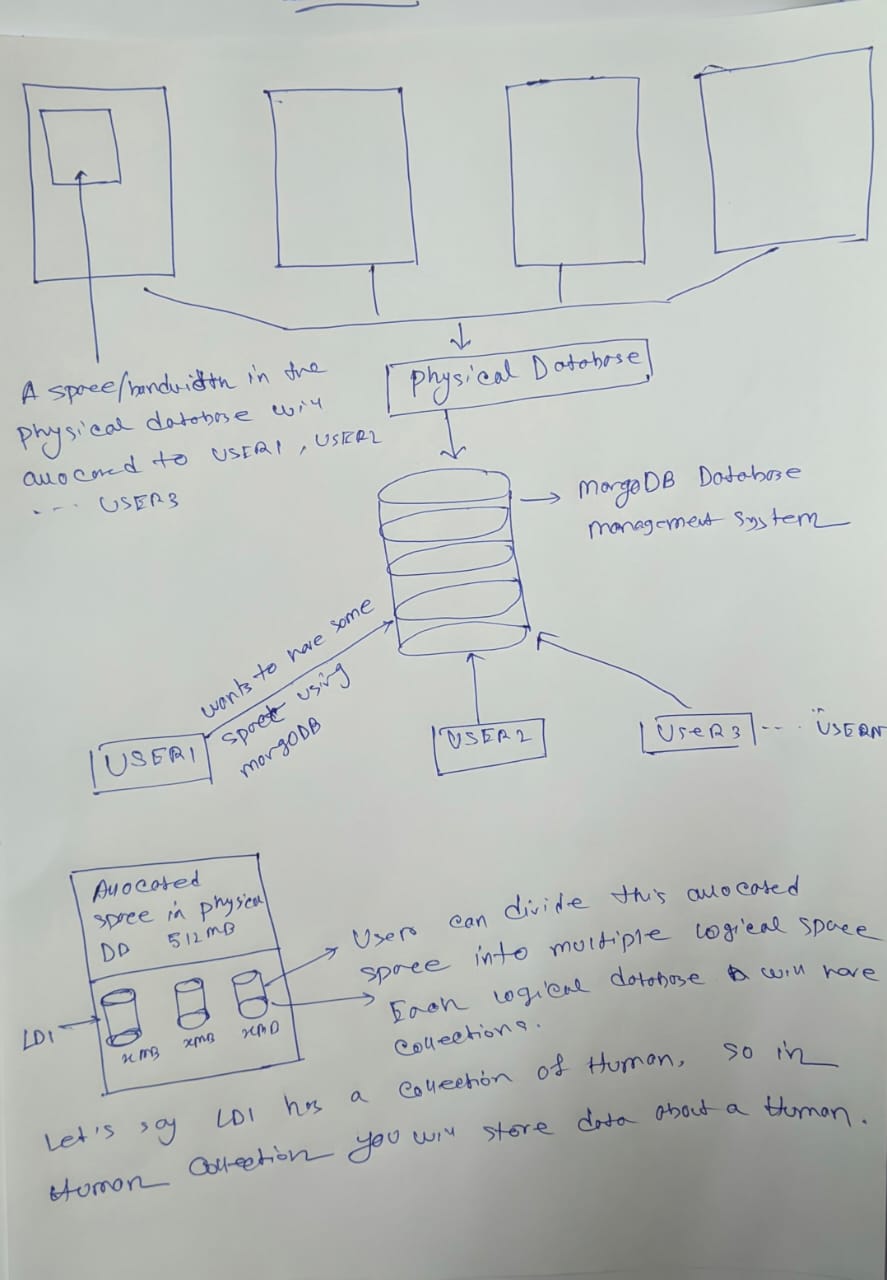 A space/bandwidth in the
physical database will
allocared to USER1, USER2
.... USER3
Physical Database
MongoDB Database
management system
wants to have some
space using
mongoDB
USER1
USER2
USER3 .... USERN
Allocated
space in physical
DB 512MB
LD1
xMB xMB xMB
Users can divide this allocated
space into multiple logical space
Each logical database will have
collections.
Let's say LD1 has a collection of Human, so in
Human Collection you will store data about a Human.